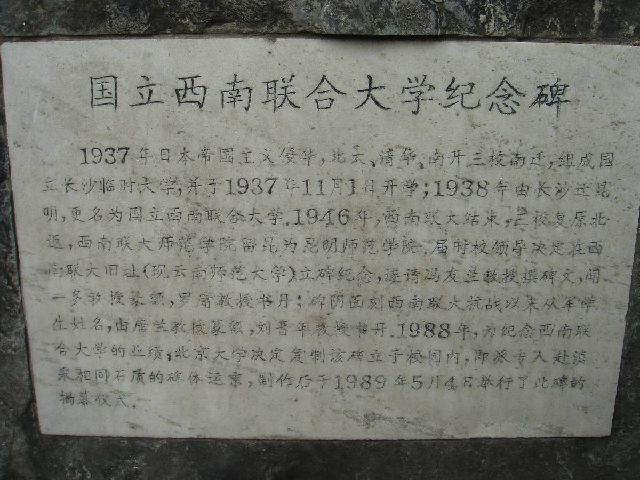 国立西南联合大学纪念碑
1937年日本帝国主义侵华,北大、清华、南开三校南迁,组成国
立长沙临时大学,并于1937年11月1日开学;1938年由长沙迁昆
明,更名为国立西南联合大学.1946年,西南联大结束,三校复原北
返,西南联大师范学院留昆为昆明师范学院.届时校领导决定在西
南联大旧址(现云南师范大学)立碑纪念,邀请冯友兰教授撰碑文,闻
一多教授篆额,罗庸教授书丹;碑阴面刻西南联大抗战以来从军学
生姓名,由唐兰教授篆额,刘晋年教授书丹.1988年,为纪念西南联
合大学的业绩,北京大学决定复制该碑立于校园内,即派专人赴滇
采相同石质的碑体运京,制作后于1989年5月4日举行了此碑的
揭幕仪式.